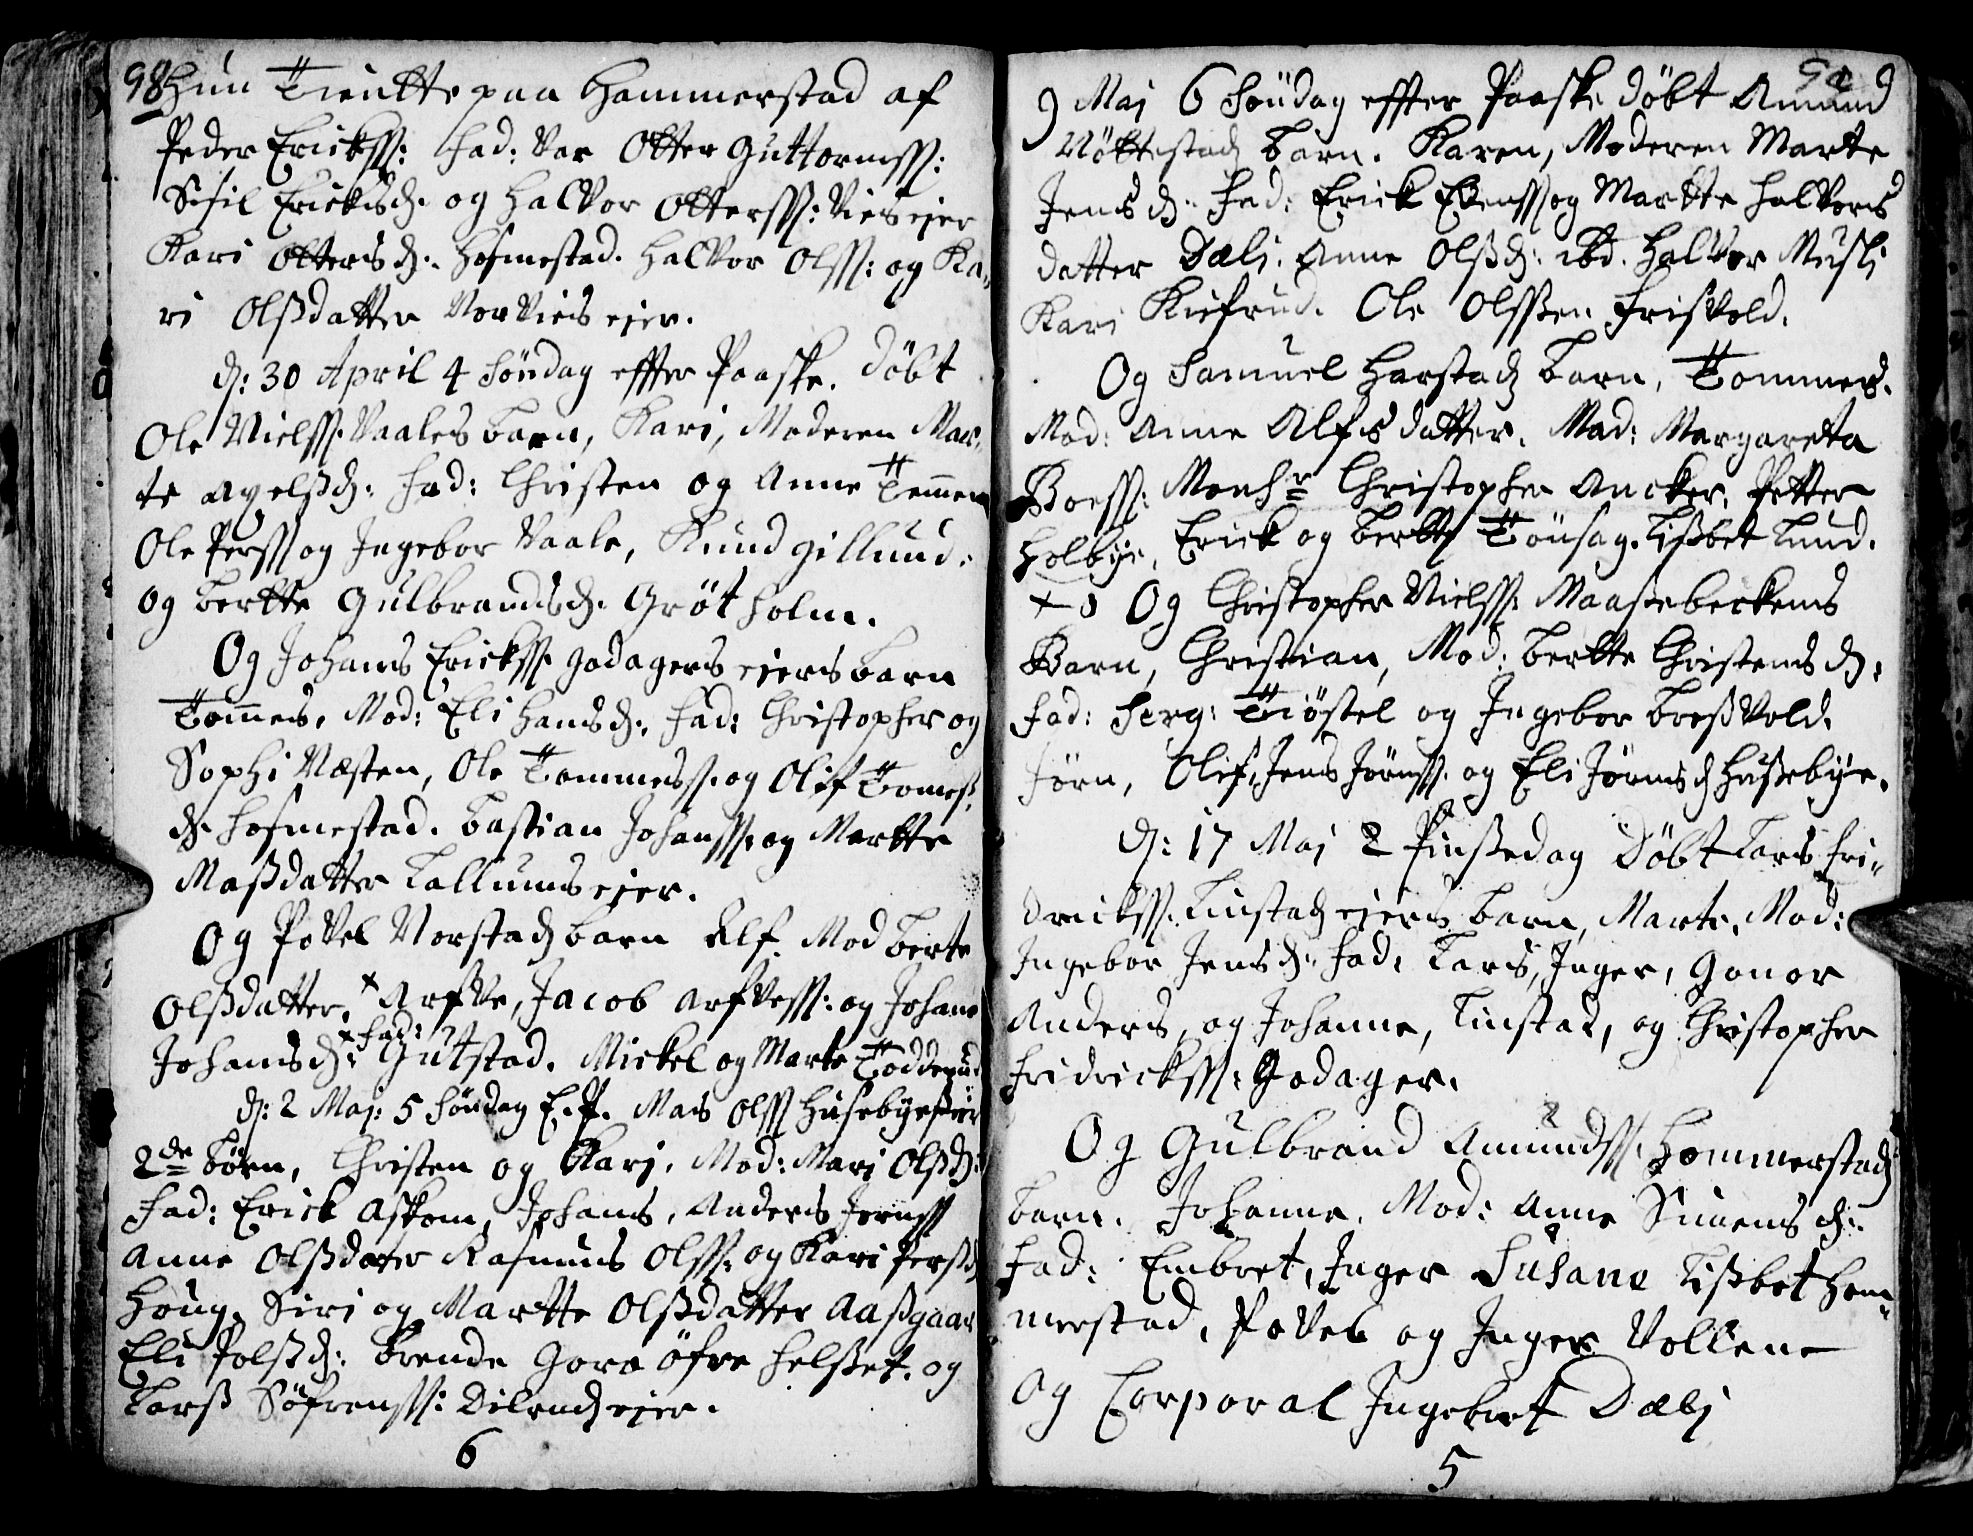 98 hun Tientte paa Hammerstad af
Peder Erickss: Fad: var Otter Guttormss:
Sisil Ericksd. og Halvor Otterss: Vieseier
Kari Ottersd. Hofmestad. Halvor Olss: og Ka-
ri Olsdatter Nor Viiseier.
d: 30 April 4 Söndag effter Paaske. Döbt
Ole Nielss. Vaales barn, Kari, Moderen Mar-
te Axelsd: Fad: Christen og Anne Temmen
Ole Perss og Ingebor Vaale, Knud Gillund.
og Bertte Gulbrandsd. Grötholm.
Og Johans Erickss. Godagers eiers barn
Tommes, Mod: Eli Hansd: Fad: Christopher og
Sophi Næsten, Ole Tommess. og Olif Tomes-
d. Hofmestad. Bastian Johanss. og Martte
Masdatter Tallumseier.
Og Povel Norstad barn Alf. Mod Berte
Olsdatter. + Arfve, Jacob Arfvess: og Johane
Johansd: + Fad: Gutstad. Mickel og Marte Todderud
d: 2 Maj: 5 Söndag E. P. Mas Olss Husebyeseier
2de börn, Christen og Karj. Mod: Mari Olsd:
Fad: Erick Askom, Johans, Anders Jörnss
Anne Olsdatter Rasmus Olss: og Kari Persd
Houg, Siri og Martte Olsdatter Aasgaar
Eli Polsd: Brende Goro öfre Helset. og
Larss Söfrenss: Dilendeier.
6
9 Maj 6 Söndag effter Paaske döbt Amund
Nöttestad barn. Karen, Moderen Marte
Jens d. Fad: Erick Evenss og Martte Halvors
datter Dæli. Anne Olsd: ibd. Halvor Musli
Kari Kiefrud. Ole Olssen Friskvold.
Og Samuel Harstad barn, Tommes.
Mod: Anne Alfs datter. Mad: Margareta
Boess: Monsr Christopher Ancker, Petter
Holbye, Erick og Bertte Tönsag. Lisbet Lund.
+ Og Christopher Nielss. Maasebeckens
Barn, Christian, Mod: Bertte Christens d:
Fad: Serg: Tiöstel og Ingebor Bressvold.
Jörn, Olif, Jens Jörnss. og Eli Jörnsd Husebye.
d: 17 Maj 2 Pinsedag Döbt Lars Fri-
drickss. Linstad eiers barn, Marte, Mod:
Ingebor Jens d. Fad: Lars, Inger, Gonor
Anders, og Johanne, Linstad, og Christopher
Fridrickss: Godager.
Og Gulbrand Amundss. Hommerstad
barn. Johanne. Mod: Anne Simens d:
Fad: Embret, Inger Susane Lisbet Hom-
merstad, Povel og Inger Vollene
Og Corporal Ingebret Dælj
5